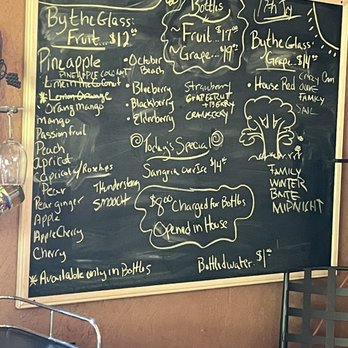 By the Glass:
Fruit... $12
Pineapple
PINEAPPLE COCONUT
Lime in The Coconut
* Lemon Orange
Orang Mango
Mango
Passion fruit
Peach
apricot
apricot w/ Rosehips
Pear
Pear ginger
Apple
Apple Cherry
Cherry
* Available only in Bottles
• October
Beach
• Blueberry
• Blackberry
• Elderberry
Thunderstorm
SMOOCH
Bottles
~ Fruit $17
~ Grape... $19
Strawberry
CRANBERRY
Today's Special
Sangria over Ice $14
$8.00 Charged for Bottles
Opened in House
Bottled water... $1
By the Glass:
Grape... $14
• House Red
FAMILY
FAMILY
WINTER
BAITE
MIDNIGHT